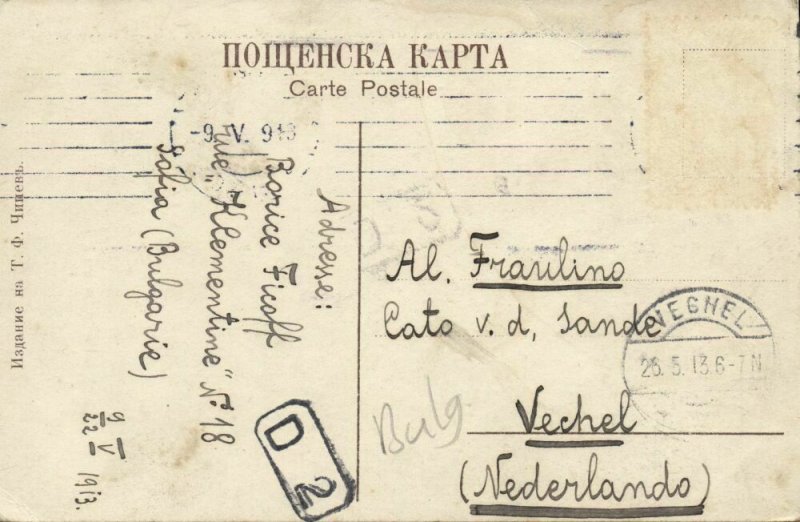 ПОЩЕНСКА КАРТА
Carte Postale
-9. V. 913
Издание на Т. Ф. Чипевъ.
Adresse:
Borice Ficoff
rue „Klementine" № 18
Sofia (Bulgarie)
9/22 V 1913.
D 2
Bulg
Al. Fraulino
Cato v. d. Sande
Vechel
(Nederlando)
VEGHEL
26.5.13.6-7N